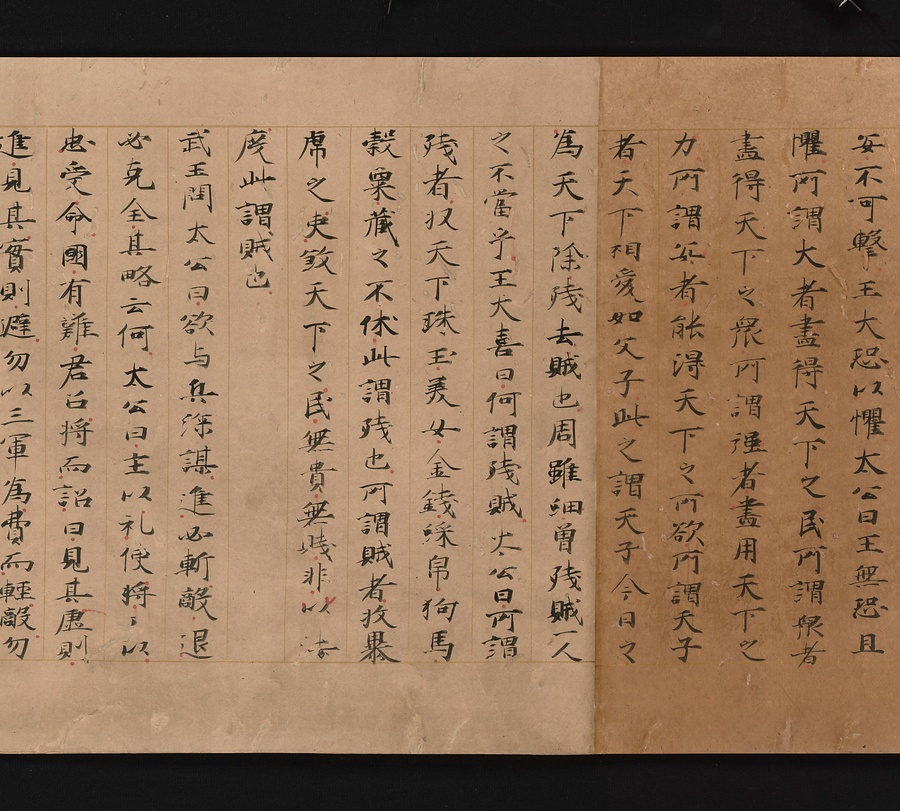 安不可擊王大恐以懼太公曰王無恐且
懼所謂大者盡得天下之民所謂衆者
盡得天下之衆所謂强者盡用天下之
力所謂安者能得天下之所欲所謂天子
者天下相愛如父子此之謂天子今日之
爲天下除残去賊也周雖細曽残賊一人
之不當乎王大喜曰何謂残賊太公曰所謂
残者収天下珠玉美女金錢綵帛狗馬
穀粟藏之不休此謂残也所謂賊者收暴
虐之吏敛天下之民無貴無賤非以法
度此謂賊也
武王問太公曰欲与兵深謀進必斬敵退
必克全其略云何太公曰主以礼使将〻以
忠受命國有難君召将而詔曰見其虚則
進見其實則避勿以三軍爲貴而輕敵勿